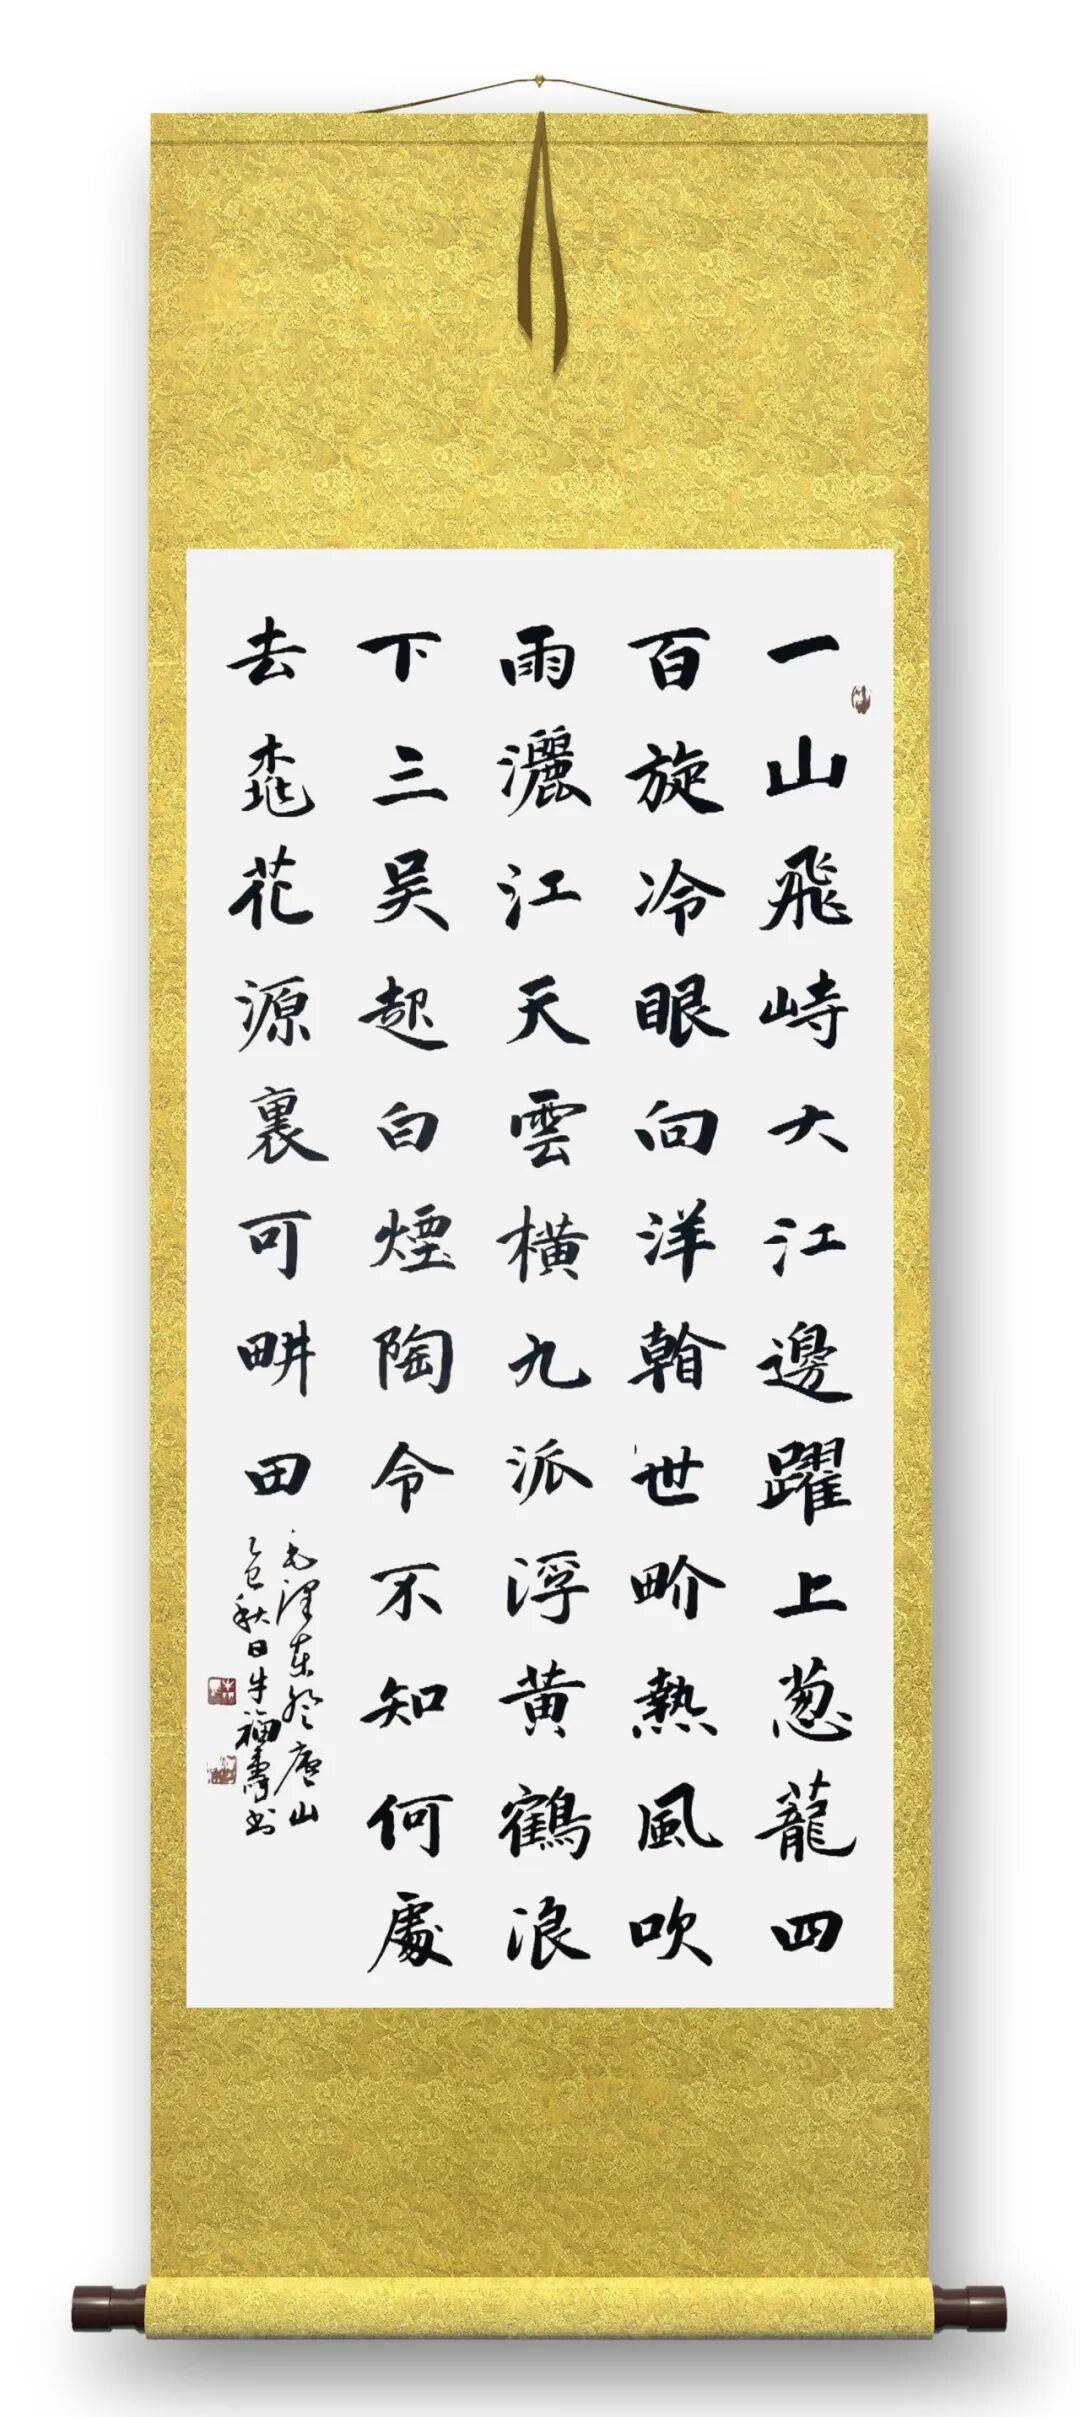 一山飛峙大江邊躍上葱蘢四
百旋冷眼向洋看世畍熱風吹
雨灑江天雲橫九派浮黄鶴浪
下三吴起白煙陶令不知何處
去桃花源裏可畊田
毛澤东廬山
乙巳秋日牛福壽书